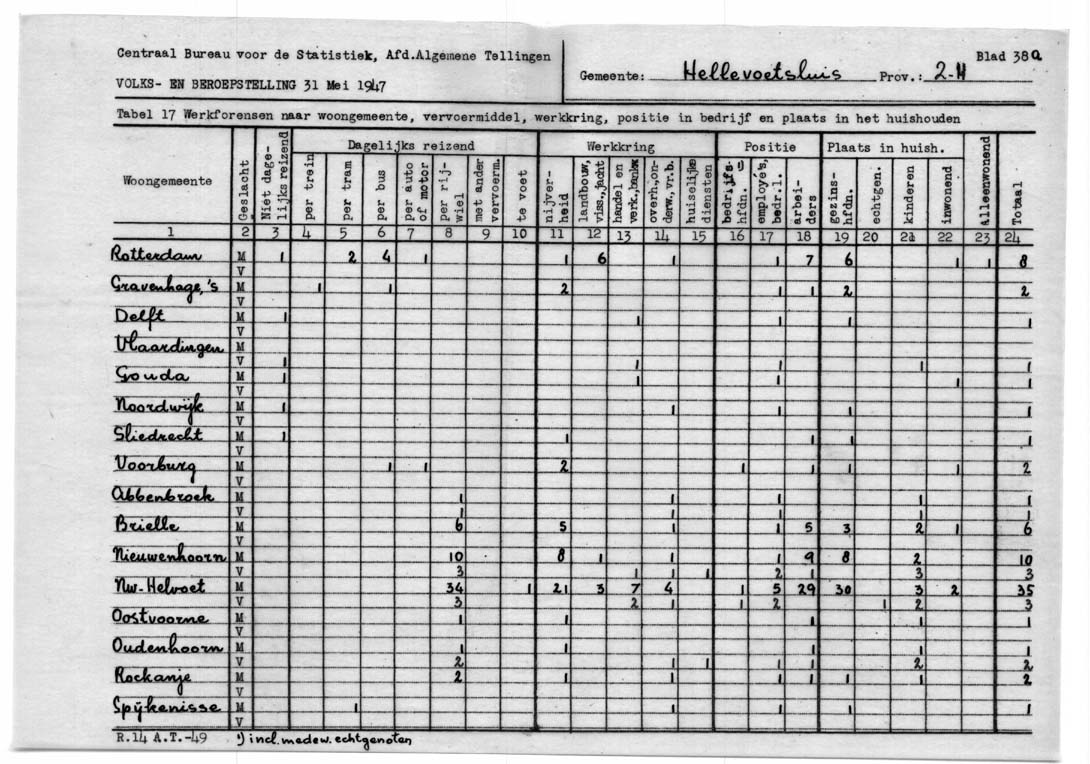 Centraal Bureau voor de Statistiek, Afd.Algemene Tellingen
VOLKS- EN BEROEPSTELLING 31 Mei 1947
Gemeente: Hellevoetsluis Prov.: 2-H
Blad 38a
Tabel 17 Werkforensen naar woongemeente, vervoermiddel, werkkring, positie in bedrijf en plaats in het huishouden
Woongemeente Geslacht Niét dage-lijks reizend Dagelijks reizend Werkkring Positie Plaats in huish. Alleenwonend Totaal
per trein per tram per bus per auto of motor per rij-wiel met ander vervoerm. te voet nijver-heid landbouw, viss.,jacht handel en verk.,bankw overh.,on-derw.,vr.b. huiselijke diensten bedrijfs-hfdn. ¹) employé's, bedr.l. arbei-ders gezins-hfdn. echtgen. kinderen inwonend
1 2 3 4 5 6 7 8 9 10 11 12 13 14 15 16 17 18 19 20 21 22 23 24
Rotterdam M 1 2 4 1 1 6 1 1 7 6 1 1 8
V
Gravenhage,'s M 1 1 2 1 1 2 2
V
Delft M 1 1 1 1 1
V
Vlaardingen M
V 1 1 1 1 1
Gouda M 1 1 1 1 1
V
Noordwijk M 1 1 1 1 1
V
Sliedrecht M 1 1 1 1 1
V
Voorburg M 1 1 2 1 1 1 1 2
V
Abbenbroek M 1 1 1 1 1
V 1 1 1 1 1
Brielle M 6 5 1 1 5 3 2 1 6
V
Nieuwenhoorn M 10 8 1 1 1 9 8 2 10
V 3 1 1 1 2 1 3 3
Nw-Helvoet M 34 1 21 3 7 4 1 5 29 30 3 2 35
V 3 2 1 1 2 1 2 3
Oostvoorne M 1 1 1 1 1
V
Oudenhoorn M 1 1 1 1 1
V 2 1 1 1 1 2 2
Rockanje M 2 1 1 1 1 1 1 2
V
Spijkenisse M 1 1 1 1 1
V
R.14 A.T.-49 ¹) incl.medew.echtgenoten